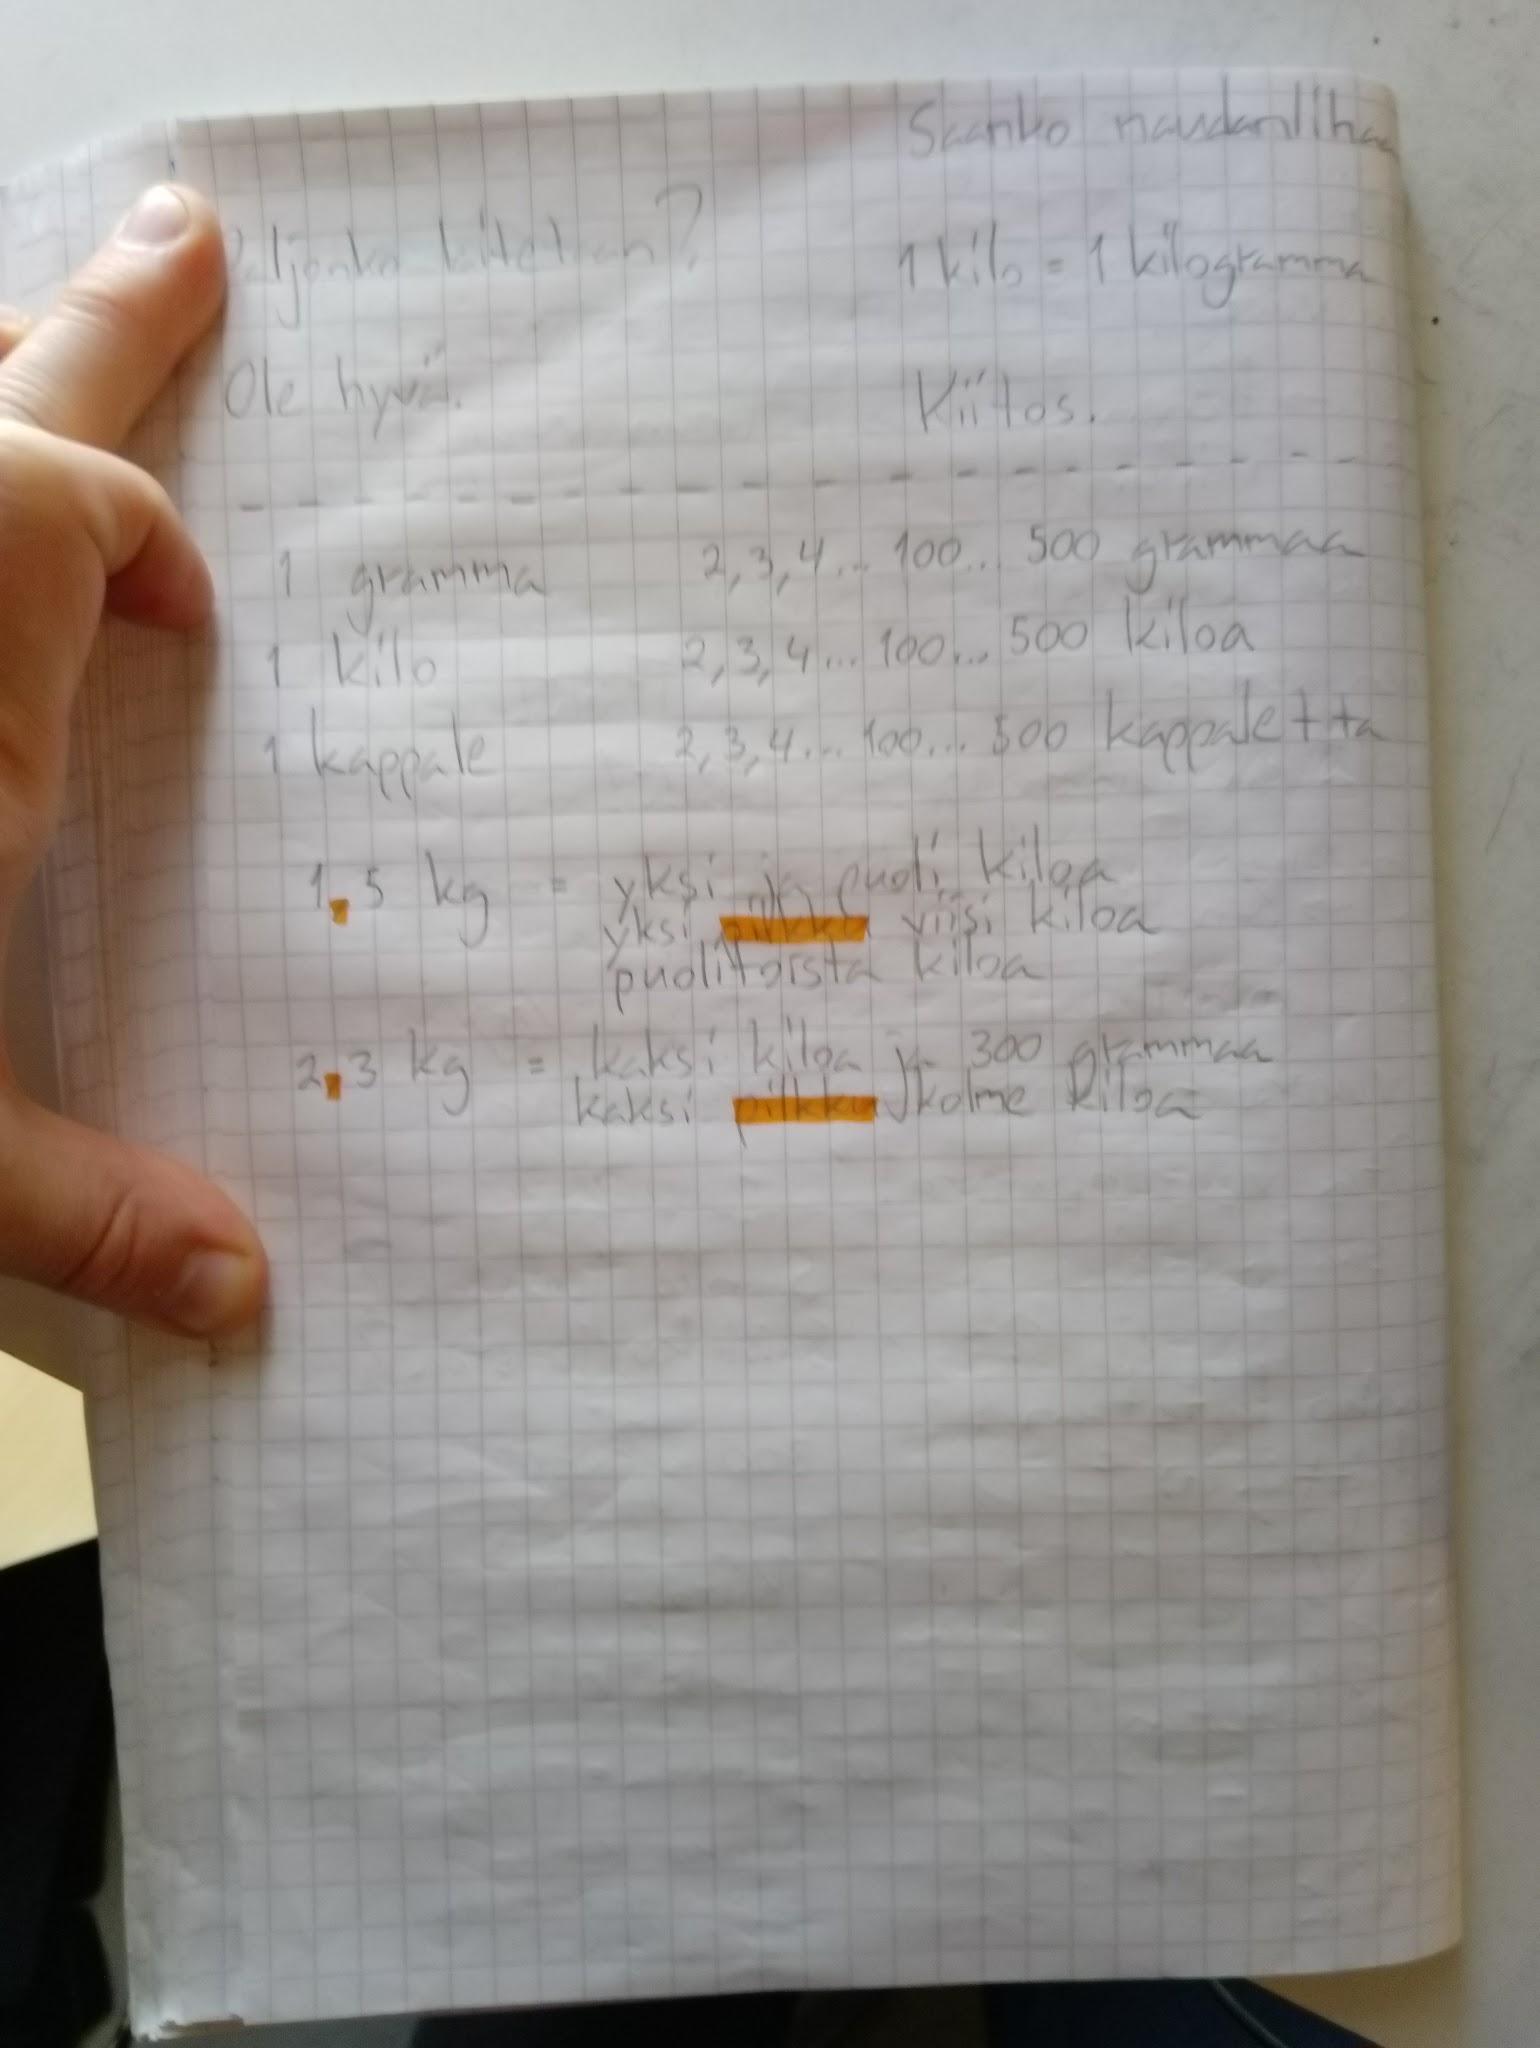 Saanko naudanlihaa
Paljonko laitetaan?
1 kilo = 1 kilogramma
Ole hyvä.
Kiitos.
1 gramma 2, 3, 4... 100... 500 grammaa
1 kilo 2, 3, 4... 100... 500 kiloa
1 kappale 2, 3, 4... 100... 500 kappaletta
1,5 kg = yksi ja puoli kiloa
yksi pilkku viisi kiloa
puolitoista kiloa
2,3 kg = kaksi kiloa ja 300 grammaa
kaksi pilkku kolme kiloa